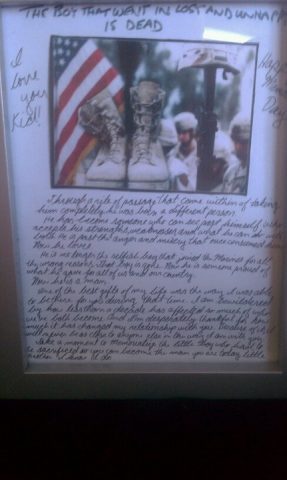 THE BOY THAT WENT IN LOST AND UNHAPPY
IS DEAD
I
love
you
Kid!!
Happy
Day
Through a rite of passage that came within of taking
him completely, he was born a different person.
He has become someone who can see past himself
accepts his strengths, weaknesses and what he can do
with. He is past the anger and misery that once consumed him
Now he lives.
He is no longer the selfish boy that joined the Marines for all
the wrong reasons. That boy is gone. Now he is someone proud of
what he gave for all of us and our country.
Now he is a man.
One of the best gifts of my life was the way it was able
to be there for you during that time. I am
by how less than a decade has affected so much of what
we've both become. And I'm desperately thankful for how
much it has changed my relationship with you. Because of it I
will never be as close to anyone else in the way I am with you.
Take a moment to memorialize the little boy who had to
be sacrificed so you can become the man you are today little
brother. I know I do.